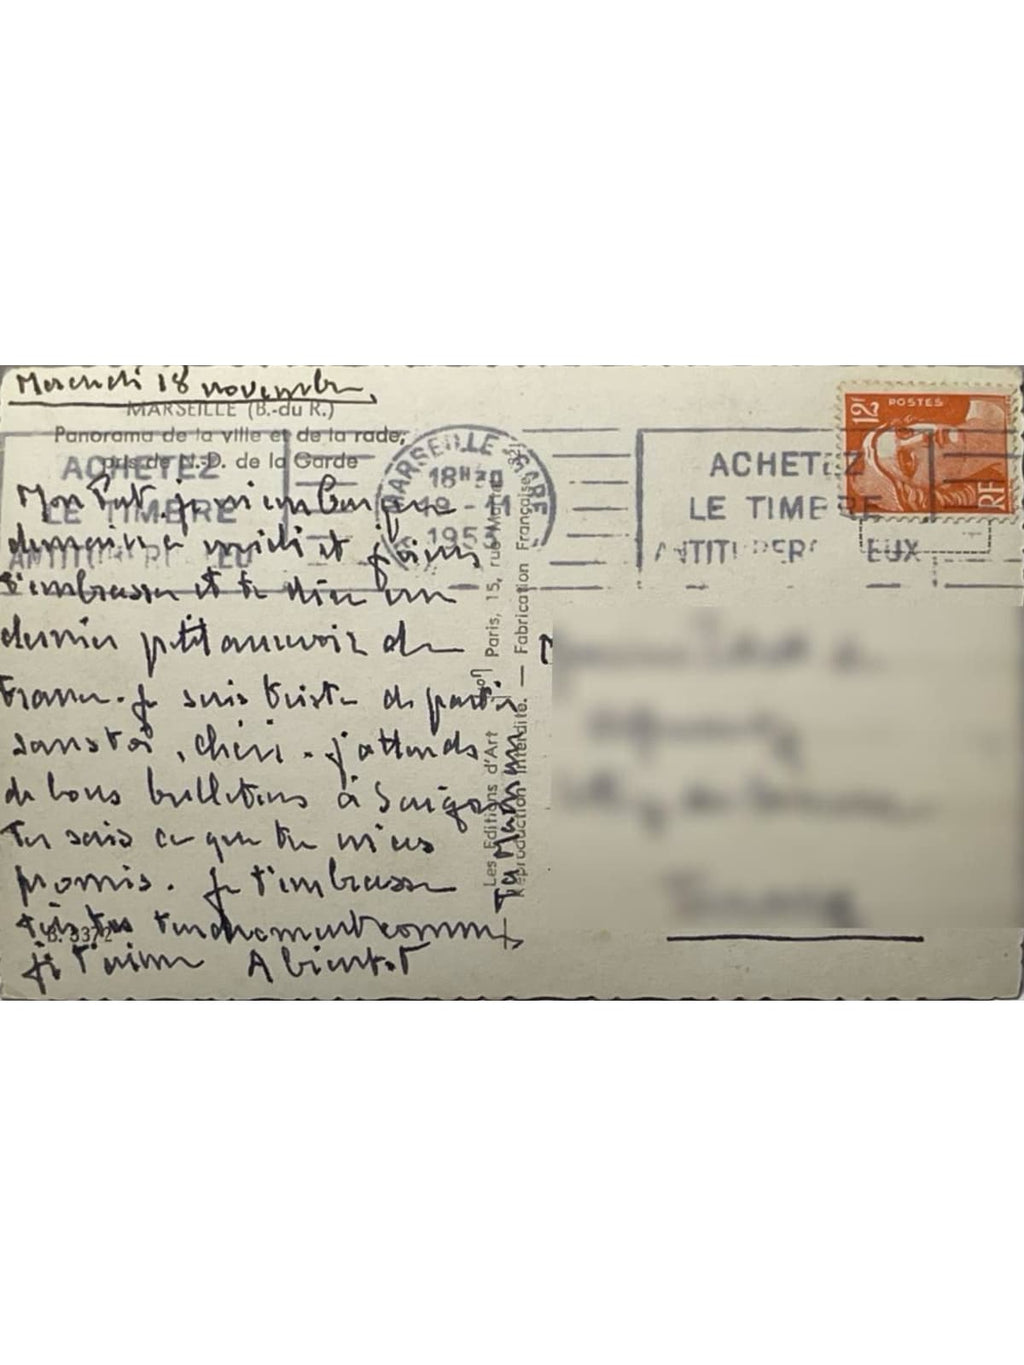 Mercredi 18 novembre
MARSEILLE (B.-du R.)
Panorama de la ville et de la rade,
pris de N.-D. de la Garde
ACHETEZ
LE TIMBRE
MARSEILLE GARE
18H30
18 - 11
1953
ACHETEZ
LE TIMBRE
ANTITUBERCULEUX
12F
POSTES
RF
je m'embarque
demain à midi et
t'embrasser et te dire un
dernier petit au revoir de
France. Je suis triste de partir
sans toi, chéri. J'attends
de bons bulletins à Saigon
Tu sais ce que tu m'as
promis. Je t'embrasse
très très tendrement comme
je t'aime A bientôt
Ta Maman
B. 3372
Les Editions d'Art Paris, 15, rue
Reproduction Interdite. — Fabrication Française